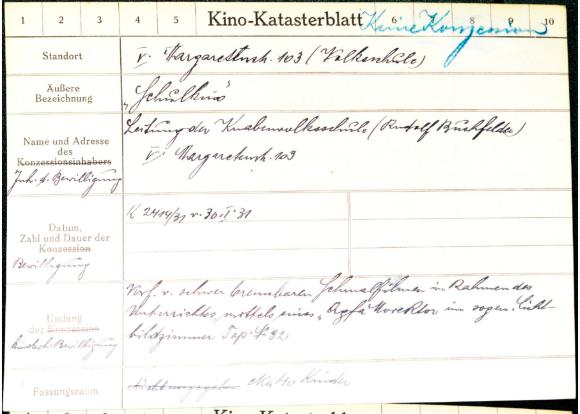 1 2 3 4 5 Kino-Katasterblatt 6 8 9 10
Keine Konzession
Standort
V. Margaretenstr. 103 (Volksschule)
Äußere
Bezeichnung
„Schulkino"
Name und Adresse
des
Konzessionsinhabers
Inh. d. Bewilligung
Leitung der Knabenvolksschule (Rudolf Buchfelder)
V. Margaretenstr. 103
Datum,
Zahl und Dauer der
Konzession
Bewilligung
K 2414/31 v. 30.I.31
Umfang
der Konzession
Bewilligung
Vorf. v. schwer brennbaren Schmalfilmen im Rahmen des
Unterrichtes, mittels eines im sogen. Licht-
bildzimmer
Fassungsraum
40 Kinder
Kino-Katasterbl